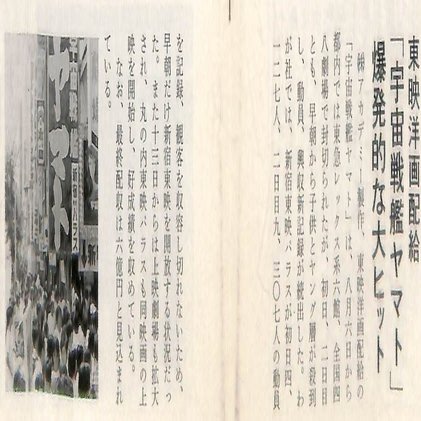 東映洋画配給
「宇宙戦艦ヤマト」
爆発的な大ヒット
㈱アカデミー製作、東映洋画配給の
「宇宙戦艦ヤマト」は、八月六日から
都内では東急レックス系六館、全国四
八劇場で封切られたが、初日、二日目
とも、早朝から子供とヤング層が殺到
し、動員、興収新記録が続出した。わ
が社では、新宿東映パラスが初日四、
一二七人、二日目九、三〇七人の動員
を記録、観客を収容し切れないため、
早朝だけ新宿東映を開放する状況だっ
た。また十三日からは上映劇場も拡大
され、丸の内東映パラスも同映画の上
映を開始し、好成績を収めている。
なお、最終配収は六億円と見込まれ
ている。
ヤマト